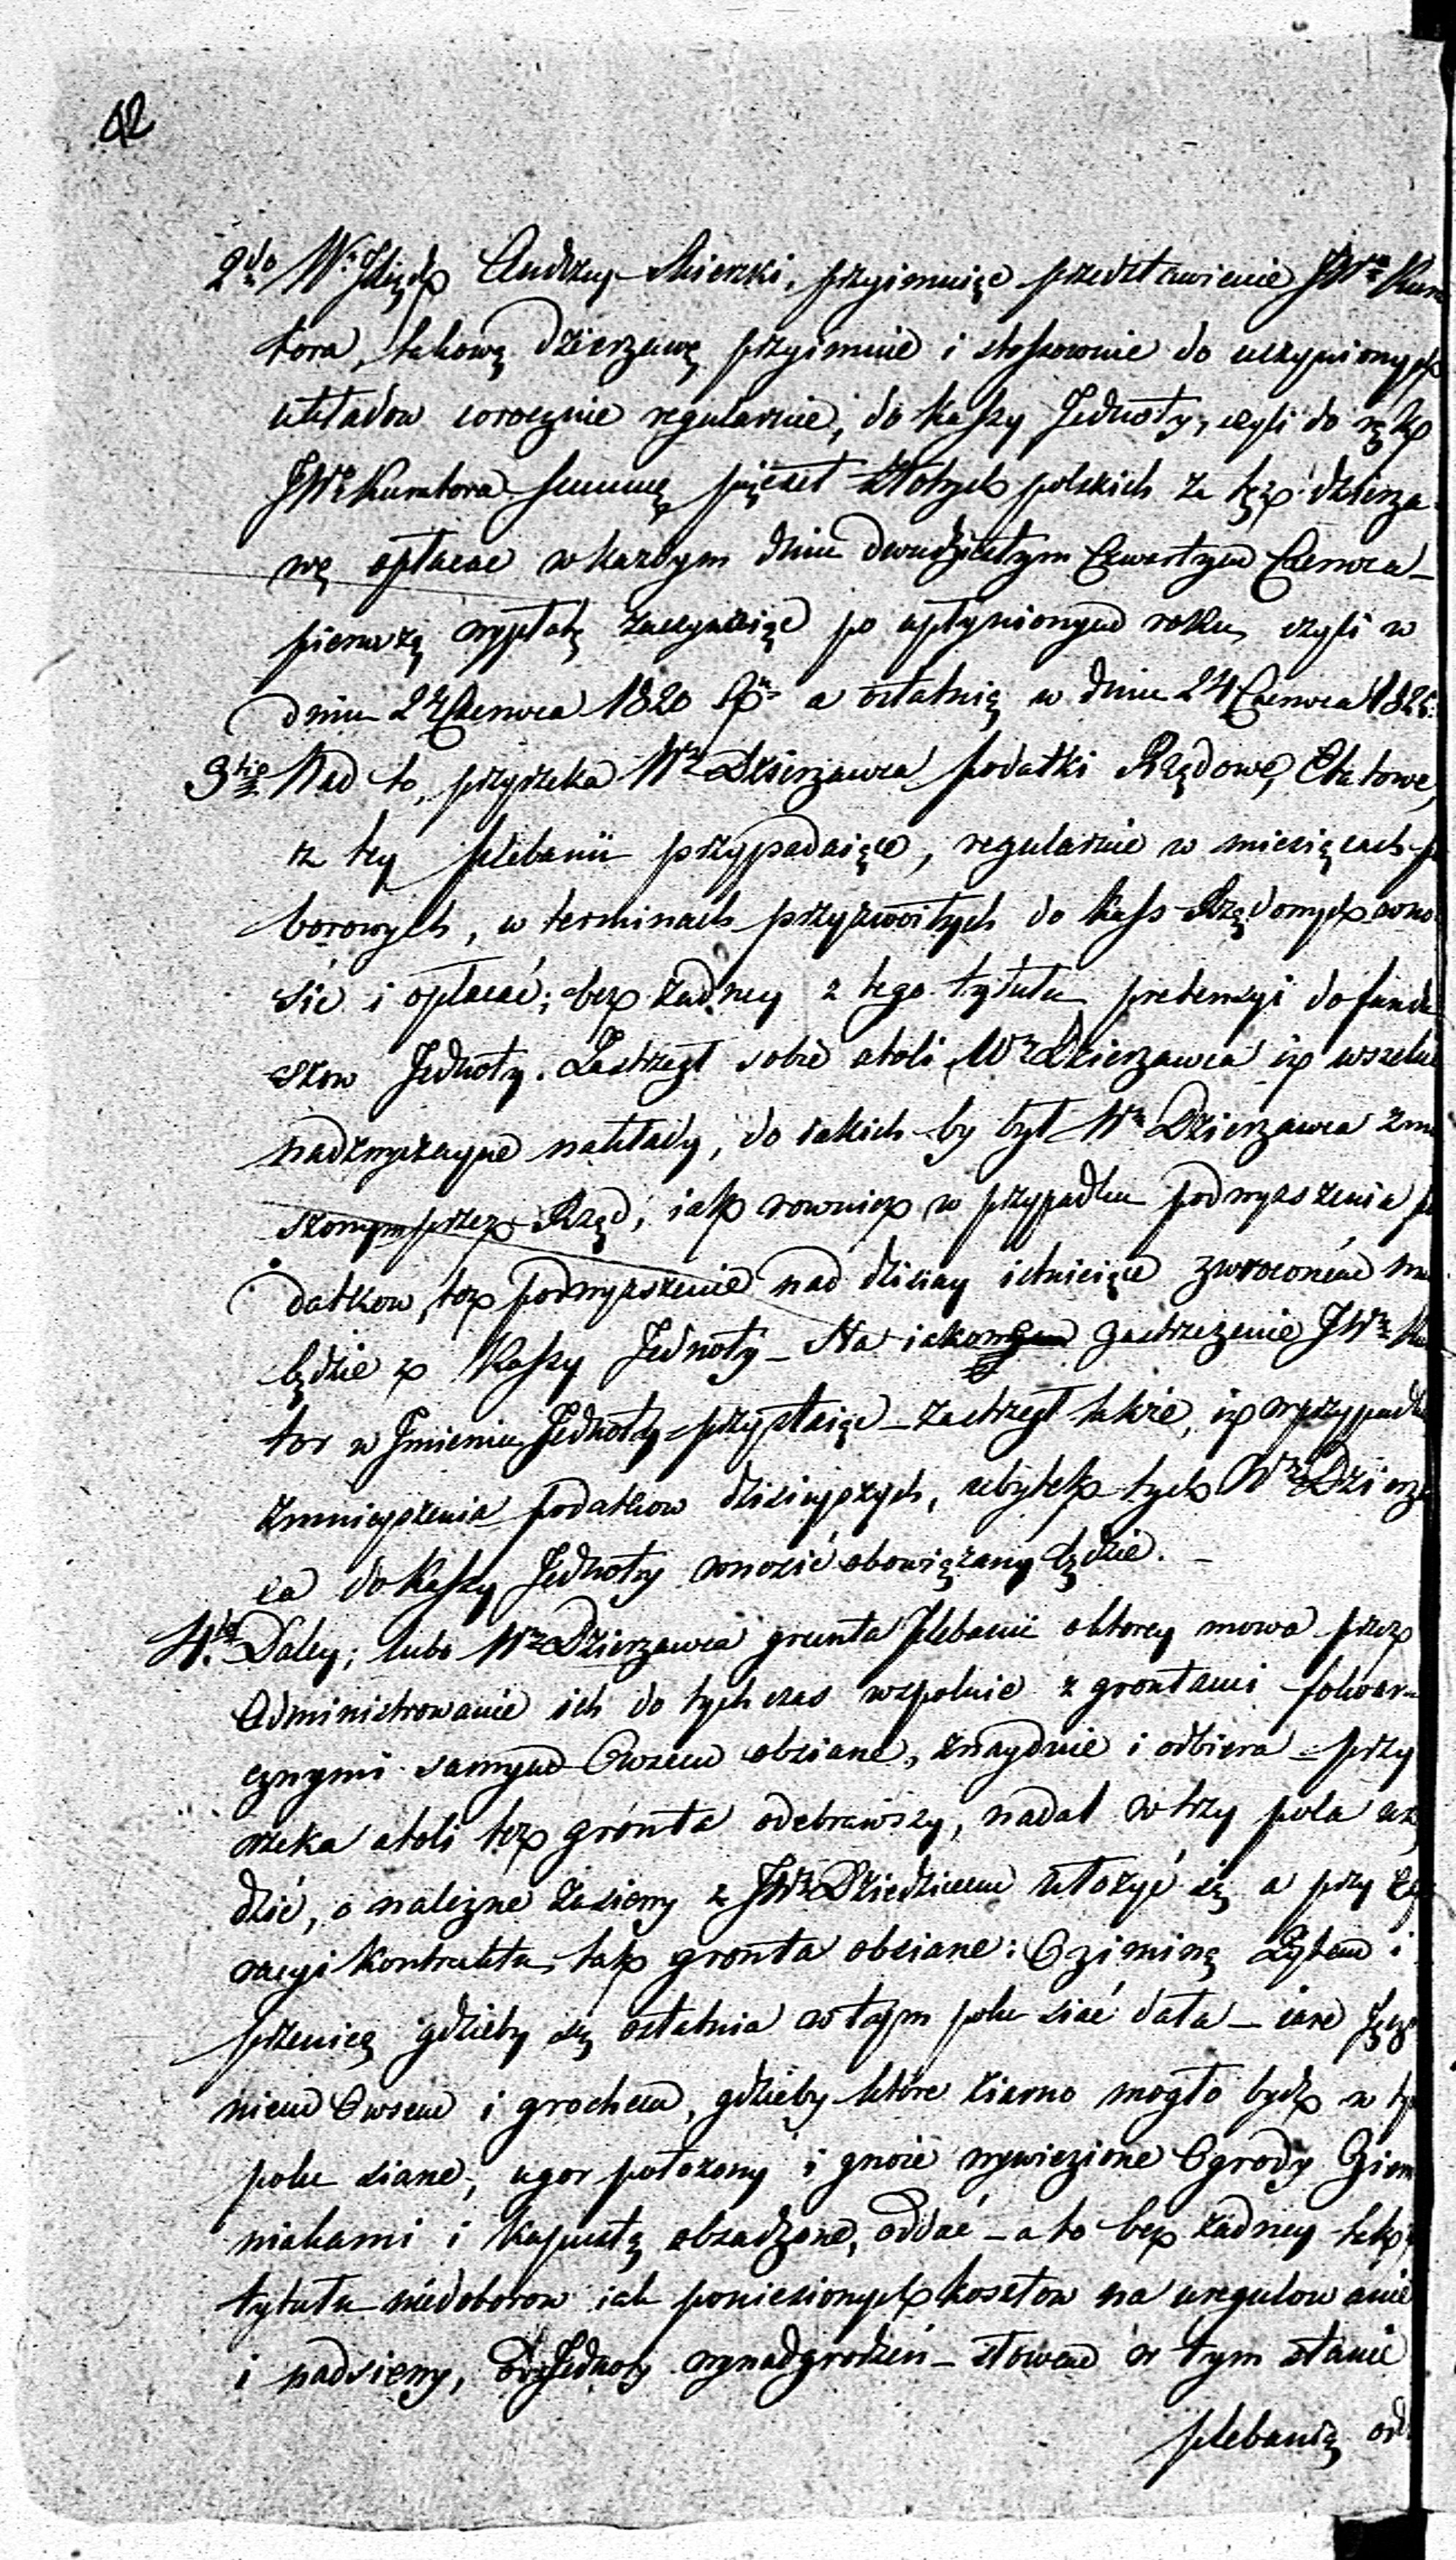 42
2do Wy Xiądz Andrzey Skierski, przyimuiąc przedstawienie JWo Kura
tora, takową Dzierzawę przyimuie i stosownie do uczyniony ch
układow corocznie regularnie, do Kassy Jednoty, czyli do rąk
JWo Kuratora Summę pięcset złotych polskich za tęz dzierza
wę opłacac w kazdym dniu dwudziestym Czwartym Czerwca –
pierwszą wypłatę zaczynaiąc po upłynionym roku, czyli w
dniu 24 Czerwca 1820 a ostatnią w dniu 24 Czerwca 182
3tio Nad to, przyrzeka Wy Dzierzawca podatki Rządowe, Etatowe,
z tey plebanii przypadaiące, regularnie w miesiącach p
borowych, w terminach przyzwoitych do Kass Rządowych wno
sić i opłacać; bez zadney z tego tytułu pretensyi do fundu
szow Jednoty. Zastrzegł sobie atoli Wy Dzierzawca iz wszelkie
nadzwyczayne nakłady, do iakich by był Wy Dzierzawca zmu
szonym przez Rząd, iak rowniez w przypadku podwyzszenia po
datkow, toz podwyzszenie nad dzisiay istnieiące zwroconem mu
będzie z Kassy Jednoty – Na iakowe zastrzezenie JWy Ku
tor w Imieniu Jednoty przystaiąc – zastrzegł takze, iz w przypadku
zmnieyszenia podatkow dzisieyszych, ubytek tych Wy Dzierza
ca do Kassy Jednoty wnosić obowiązany będzie. –
4to Daley; lubo Wy Dzierzawca grunta Plebanii o ktorey mowa przez
Administrowanie ich do tych czas wspolnie z grontami folwar
cznymi samym Owsem obsiane, znayduie i odbiera – przy
rzeka atoli tez gronta odebrawszy, nadal w trzy pola urzą
dzić, o nalezne zasiewy z JWym Dziedzicem ułozyć się a przy Exp
racyi Kontraktu tak gronta obsiane: Oziminą Zytem i
pszenicą gdzieby się ostatnia w tym polu siać dała – iare Jęcz
mieniem Owsem i grochem, gdzieby które ziarno mogło bydz w ty
polu siane, ugor położony i gnoie wywiezione Ogrody Ziem
niakami i Kapustą obsadzone, oddać – a to bez zadney tak z
tytułu niedoborow iak poniesionych kosztow na uregulowanie
i nadsiewy, od Jednoty wynadgrodzeń – słowem w tym stanie
plebanią od